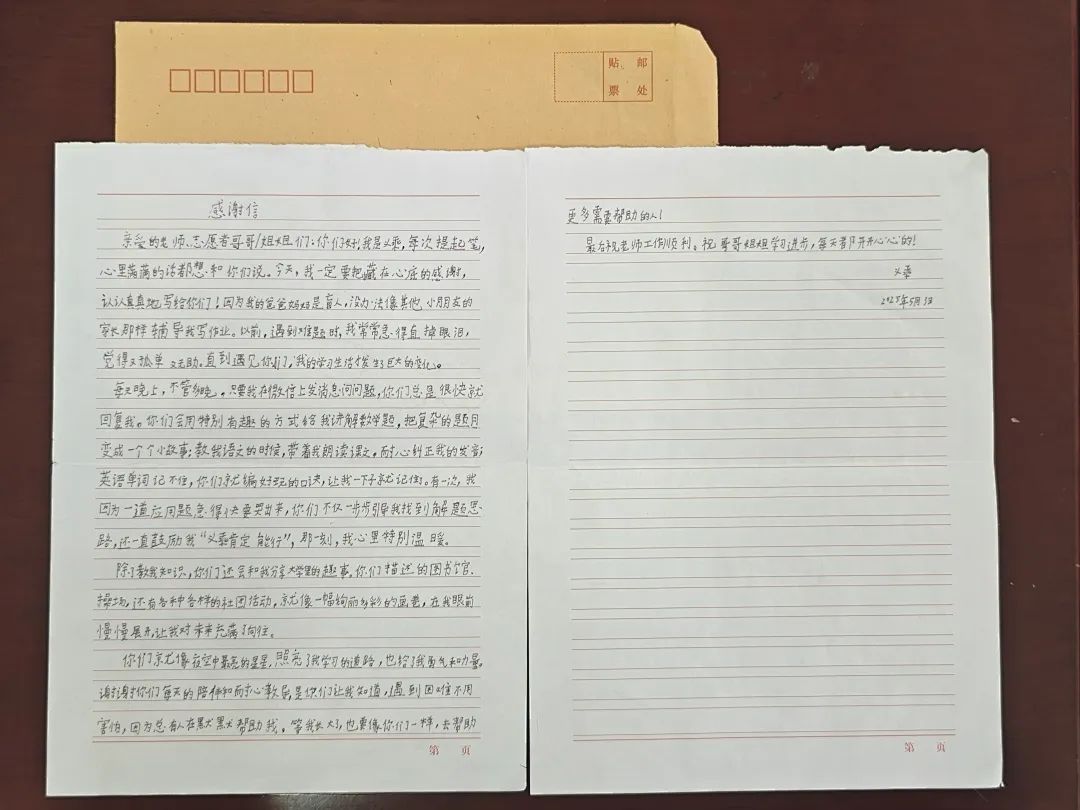 贴 邮
票 处
感谢信
亲爱的老师、志愿者哥哥/姐姐们：你们好！我是义乘，每次提起笔，
心里满满的话都想和你们说。今天，我一定要把藏在心底的感谢，
认认真真地写给你们！因为我的爸爸妈妈是盲人，没办法像其他小朋友的
家长那样辅导我写作业。以前，遇到难题时，我常常急得直掉眼泪，
觉得又孤单又无助。直到遇见你们，我的学习生活才发生了巨大的变化。
每天晚上，不管多晚，只要我在微信上发消息问问题，你们总是很快就
回复我。你们会用特别有趣的方式给我讲解数学题，把复杂的题目
变成一个个小故事；教我语文的时候，带着我朗读课文，耐心纠正我的发音；
英语单词记不住，你们就编好玩的口诀，让我一下子就记住。有一次，我
因为一道应用题急得快要哭出来，你们不仅一步步引导我找到解题思
路，还一直鼓励我“义乘肯定能行”，那一刻，我心里特别温暖。
除了教我知识，你们还会和我分享大学里的趣事。你们描述的图书馆、
操场，还有各种各样的社团活动，就像一幅绚丽多彩的画卷，在我眼前
慢慢展开，让我对未来充满了向往。
你们就像夜空中最亮的星星，照亮了我学习的道路，也给了我勇气和力量。
谢谢你们每天的陪伴和耐心教导，是你们让我知道，遇到困难不用
害怕，因为总有人在默默帮助我。等我长大了，也要像你们一样，去帮助
第 页
更多需要帮助的人！
最后祝老师工作顺利。祝哥哥姐姐学习进步，每天都开开心心的！
义乘
2025年5月3日
第 页